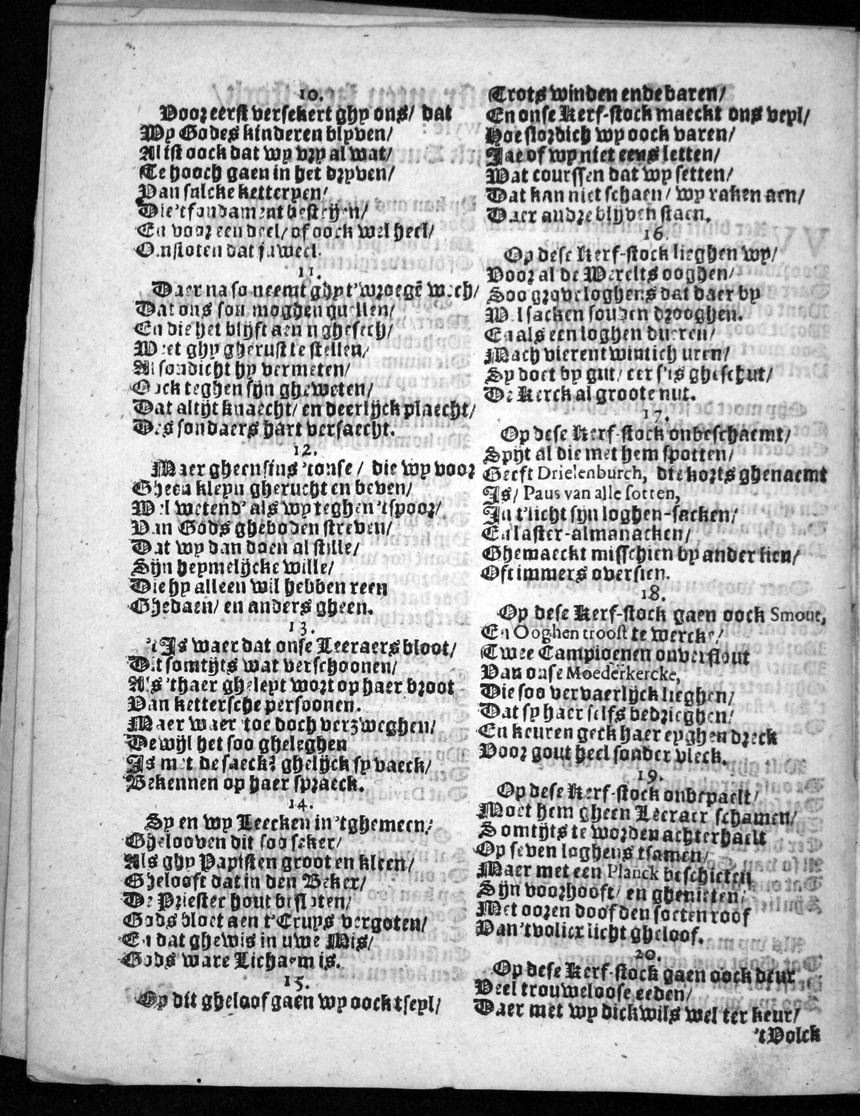 10.
Voor eerst versekert ghy ons/ dat
Wy Godes kinderen blyven/
Al ist oock dat wy vry al wat/
Te hooch gaen in het dryven/
Van sulcke ketteryen/
Die 't fondament bestryen/
En voor een deel/ of oock wel heel/
Omstoten dat juweel.
11.
Daer na so neemt ghy t'wroegē wech/
Dat ons sou moghen quellen/
En die het blijft aen u ghesech/
Weet ghy gherust te stellen/
Al sondicht hy vermeten/
Oock teghen sijn gheweten/
Dat altijt knaecht/ en deerlijck plaecht/
Des sondaers hart versaecht.
12.
Maer gheensins 'tonse/ die wy voor
Gheen kleyn gherucht en beven/
Wel wetend' als wy teghen 'tspoor/
Van Gods gheboden streven/
Dat wy dan doen al stille/
Sijn heymelijcke wille/
Die hy alleen wil hebben reen
Ghedaen/ en anders gheen.
13.
't Is waer dat onse Leeraers bloot/
Dit somtijts wat verschoonen/
Als 'thaer gheleyt wort op haer broot
Van kettersche persoonen.
Maer waer toe doch verzweghen/
Dewijl het soo gheleghen
Is met de saeck? ghelijck sy vaeck/
Bekennen op haer spraeck.
14.
Sy en wy Leecken in 'tghemeen/
Ghelooven dit soo seker/
Als ghy Papisten groot en kleen/
Ghelooft dat in den Beker/
De Priester hout besloten/
Gods bloet aen t'Cruys vergoten/
En dat ghewis in uwe Mis/
Gods ware Lichaem is.
15.
Op dit gheloof gaen wy oock tseyl/
Trots winden ende baren/
En onse Kerf-stock maeckt ons veyl/
Hoe slordich wy oock varen/
Jae of wy niet eens letten/
Wat courssen dat wy setten/
Dat kan niet schaen/ wy raken aen/
Daer andre blijven staen.
16.
Op dese Kerf-stock lieghen wy/
Voor al de Werelts ooghen/
Soo grove loghens dat daer by
Wel sacken souden drooghen.
En als een loghen dueren/
Mach vier en twintich uren/
Sy doet by gut/ eer s'is gheschut/
De Kerck al groote nut.
17.
Op dese Kerf-stock onbeschaemt/
Spijt al die met hem spotten/
Geeft Drielenburch, die korts ghenaemt
Is/ Paus van alle sotten,
In t'licht sijn loghen-sacken/
En laster-almanacken/
Ghemaeckt misschien by ander lien/
Oft immers oversien.
18.
Op dese Kerf-stock gaen oock Smout,
En Ooghen troost te wercke/
Twee Campioenen onverflout
Van onse Moederkercke,
Die soo vervaerlijck lieghen/
Dat sy haer selfs bedrieghen/
En keuren geck haer eyghen dreck
Voor gout heel sonder vleck.
19.
Op dese Kerf-stock onbepaelt/
Moet hem gheen Leeraer schamen/
Somtijts te worden achterhaelt
Op seven loghens tsamen/
Maer met een Planck beschieten
Sijn voorhooft/ en ghenieten/
Met ooren doof den soeten roof
Van 'tvolicx licht gheloof.
20.
Op dese Kerf-stock gaen oock deur
Veel trouweloose eeden/
Daer met wy dickwils wel ter keur/
't Volck